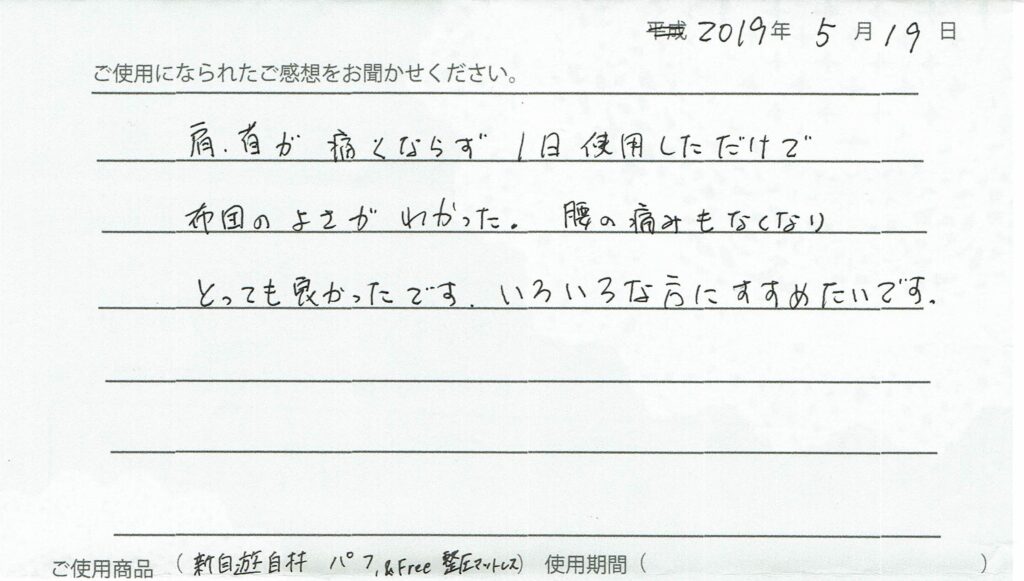 平成 2019年 5月19日
ご使用になられたご感想をお聞かせください。
肩.首が 痛くならず 1日使用しただけで
布団のよさがわかった。 腰の痛みもなくなり
とっても良かったです. いろいろな方にすすめたいです.
ご使用商品 (新自遊自材 パフ, &Free 整圧マットレス) 使用期間 ( )